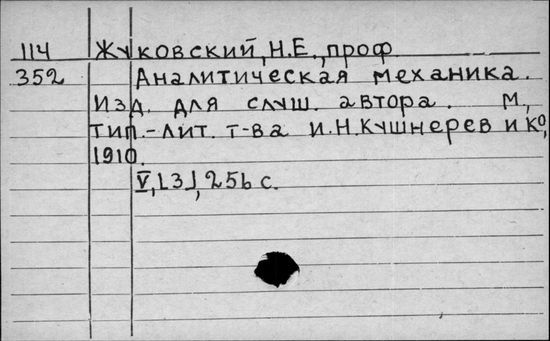 114 Жуковский, Н.Е., проф
352 Аналитическая механика.
Изд. для слуш. автора. М,
тип.-лит. т-ва И.Н.Кушнерев и Кº,
1910.
V, [3], 256 с.